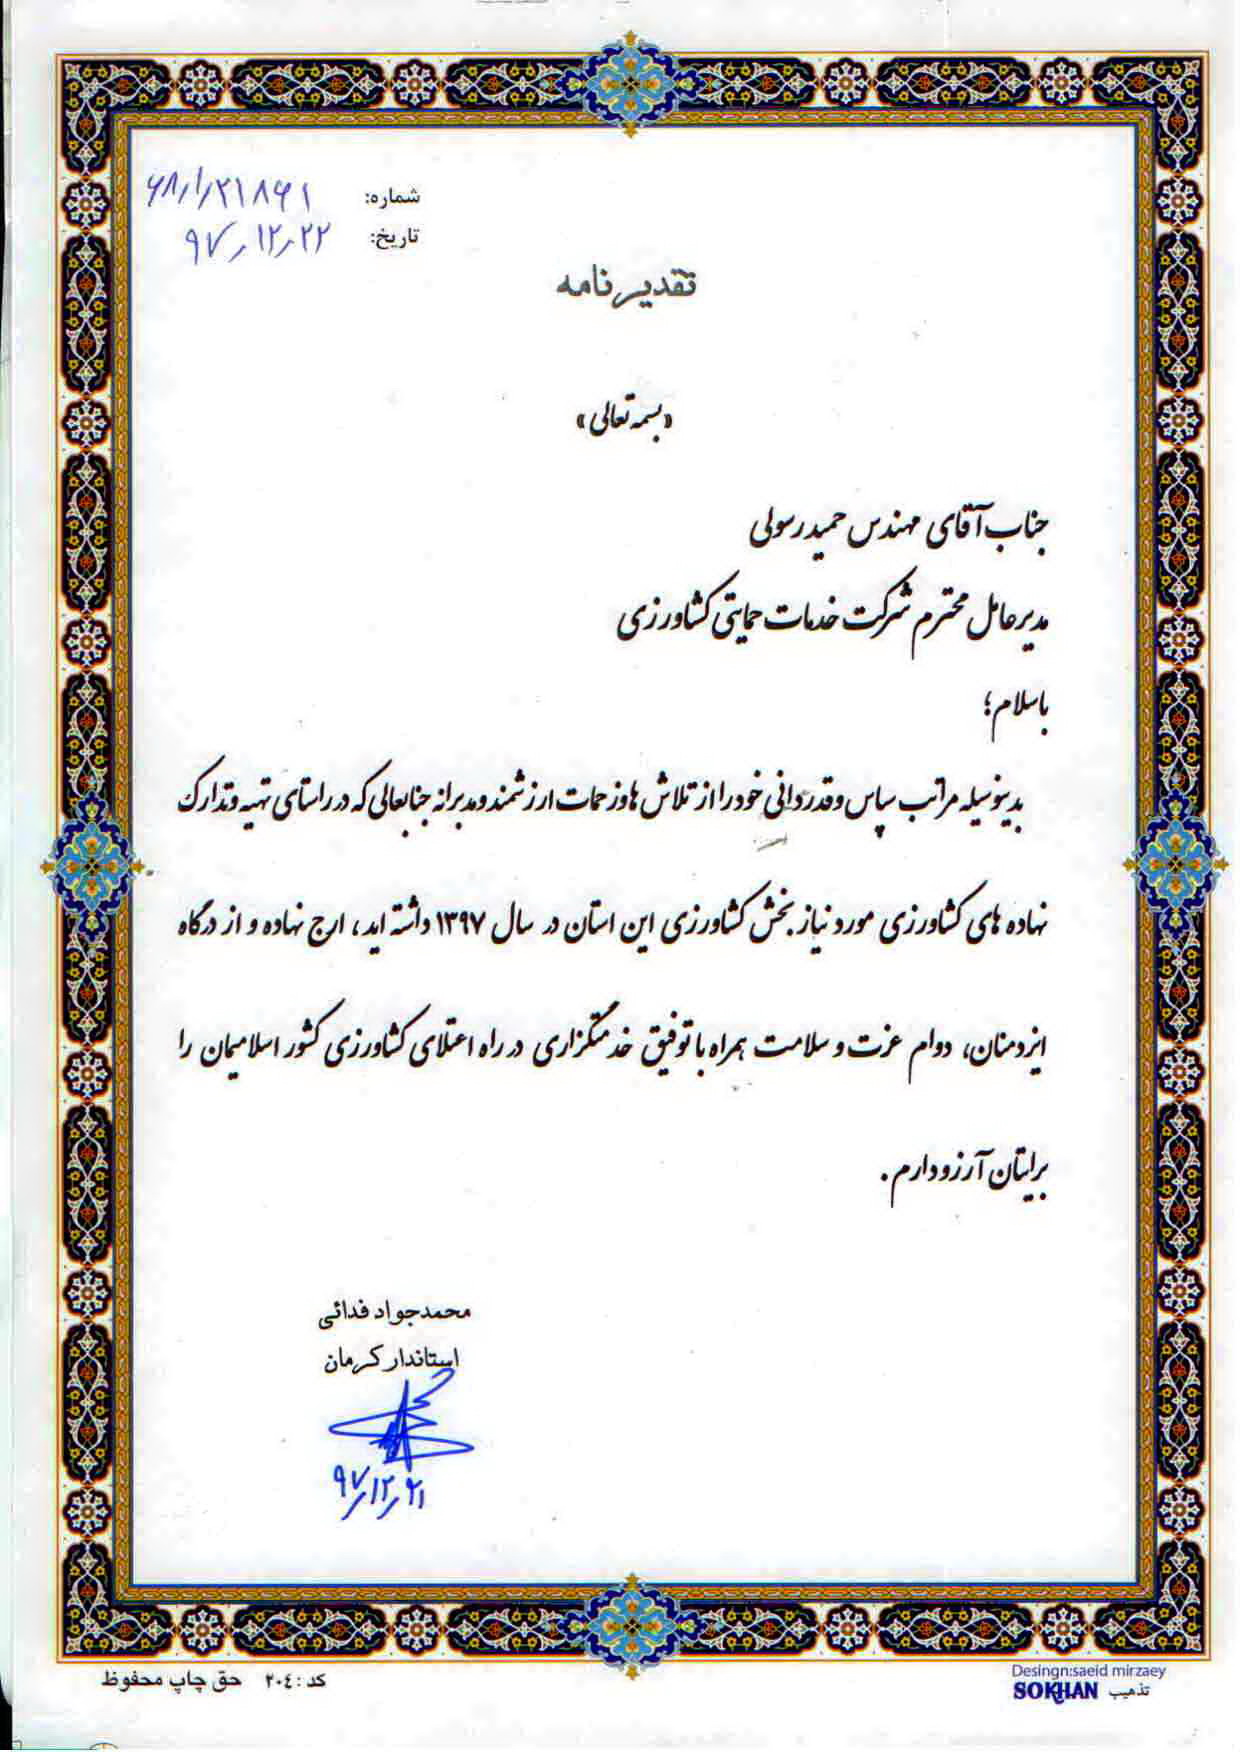 شماره: ۶۸/۱/۲۱۸۶۱
تاریخ: ۹۷/۱۲/۲۲
تقدیرنامه
«بسمه تعالی»
جناب آقای مهندس حمید رسولی
مدیرعامل محترم شرکت خدمات حمایتی کشاورزی
باسلام؛
بدینوسیله مراتب سپاس و قدردانی خود را از تلاش ها و زحمات ارزشمند و مدبرانه جنابعالی که در راستای تهیه و تدارک
نهاده های کشاورزی مورد نیاز بخش کشاورزی این استان در سال ۱۳۹۷ داشته اید، ارج نهاده و از درگاه
ایزدمنان، دوام عزت و سلامت همراه با توفیق خدمتگزاری در راه اعتلای کشاورزی کشور اسلامیمان را
برایتان آرزو دارم.
محمدجواد فدائی
استاندار کرمان
۹۷/۱۲/۲۱
Desingn:saeid mirzaey
تذهیب SOKHAN
کد : ۲۰٤ حق چاپ محفوظ